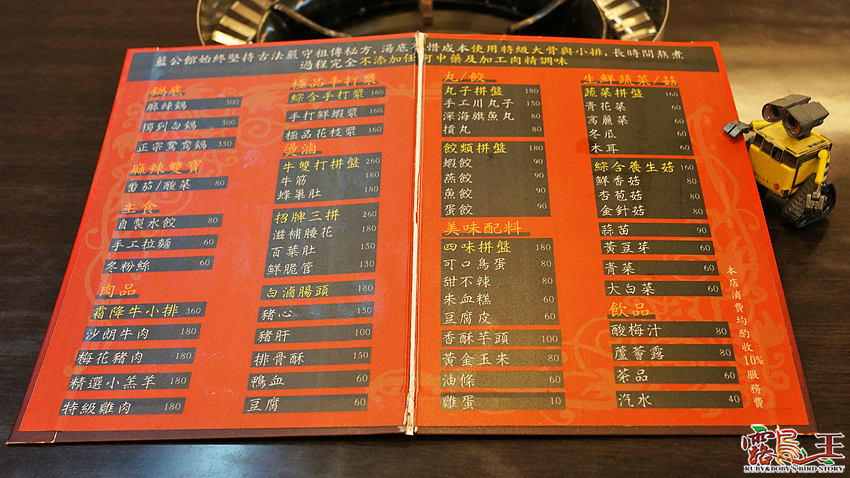 藍公館始終堅持古法嚴守祖傳秘方,湯底不惜成本使用特級大骨與小排,長時間熬煮
過程完全不添加任何中藥及加工肉精調味
鍋底
麻辣鍋 300
獨到白鍋 300
正宗鴛鴦鍋 350
麻辣雙寶
番茄/酸菜 80
主食
自製水餃 80
手工拉麵 60
冬粉絲 60
肉品
霜降牛小排 360
沙朗牛肉 180
梅花豬肉 180
精選小羔羊 180
特級雞肉 180
極品手打漿
綜合手打漿 160
手打鮮蝦漿 160
極品花枝漿 160
燙滷
牛雙打拼盤 260
牛筋 180
蜂巢肚 180
招牌三拼 260
滋補腰花 180
百葉肚 150
鮮脆管 130
白滷腸頭 180
豬心 150
豬肝 100
排骨酥 150
鴨血 60
豆腐 60
丸/餃
丸子拼盤 180
手工川丸子 150
深海旗魚丸 80
摃丸 80
餃類拼盤 180
蝦餃 90
燕餃 90
魚餃 90
蛋餃 90
美味配料
四味拼盤 180
可口鳥蛋 80
甜不辣 80
朱血糕 60
豆腐皮 60
香酥芋頭 100
黃金玉米 80
油條 60
雞蛋 10
生鮮蔬菜/菇
蔬菜拼盤 160
青花菜 60
高麗菜 60
冬瓜 60
木耳 60
綜合養生菇 160
鮮香菇 80
杏苞菇 80
金針菇 80
蒜苗 90
黃豆芽 60
青菜 60
大白菜 60
飲品
酸梅汁 80
蘆薈露 80
茶品 60
汽水 40
本店消費均酌收10%服務費
露鳥王
RUBY&BOBY'S BIRD STORY